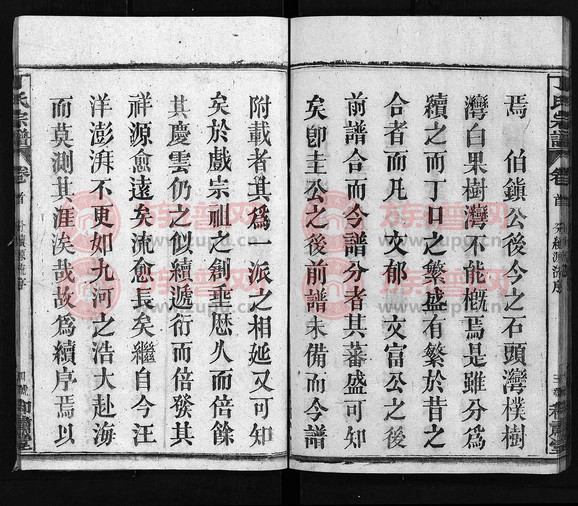 焉　伯鎮公後今之石頭灣樸樹
灣白果樹灣不能概焉是雖分爲
續之而丁口之繁盛有繁於昔之
合者而凡　文郁　文富公之後
前譜合而今譜分者其蕃盛可知
矣卽圭公之後前譜未備而今譜
附載者其爲一派之相延又可知
矣於戲宗訓之創垂歷久而倍餘
其慶雲仍之似續遞衍而倍發其
祥源愈遠矣流愈長矣繼自今汪
洋澎湃不更如九河之浩大赴海
而莫測其涯涘哉故爲續序焉以
丁氏宗譜
卷首
族譜网
www.zupu.cn